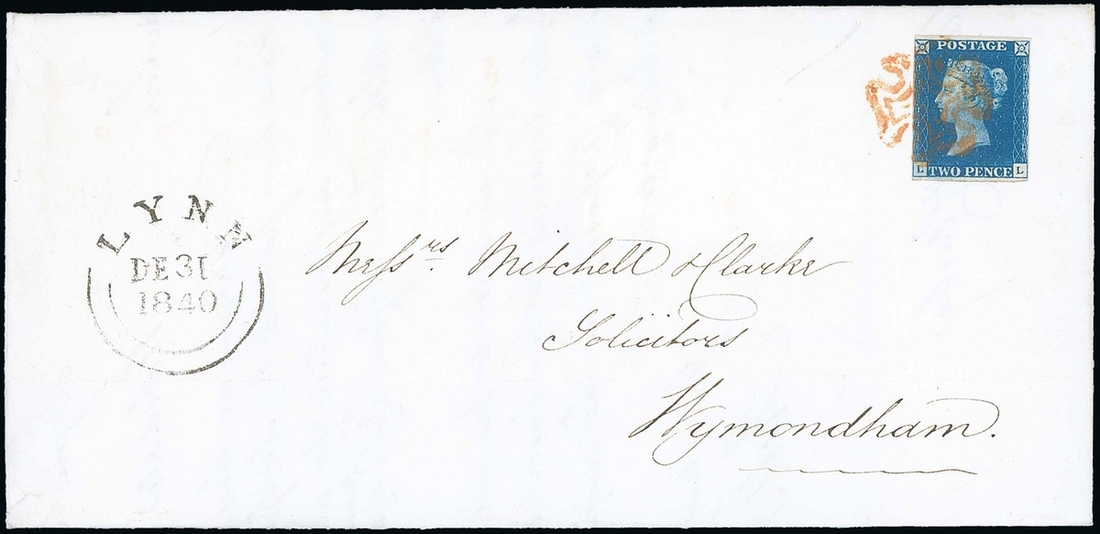 POSTAGE
L TWO PENCE L
LYNN
DE 31
1840
Messrs. Mitchell & Clarke
Solicitors
Wymondham.